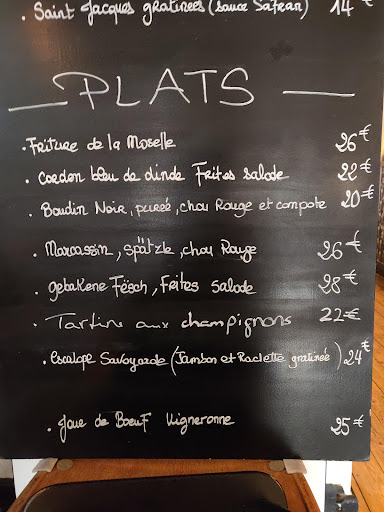 . Saint Jacques gratinées (sauce Safran) 14 €
PLATS
. Friture de la Moselle 26 €
. Cordon bleu de dinde Frites salade 22 €
. Boudin Noir, purée, chou Rouge et compote 20 €
. Marcassin, spätzle, chou Rouge 26 €
. gebakene Fësch, Frites salade 28 €
. Tartine aux champignons 22 €
. escalope Savoyarde (Jambon et Raclette gratinée) 24 €
. Joue de Boeuf Vigneronne 25 €